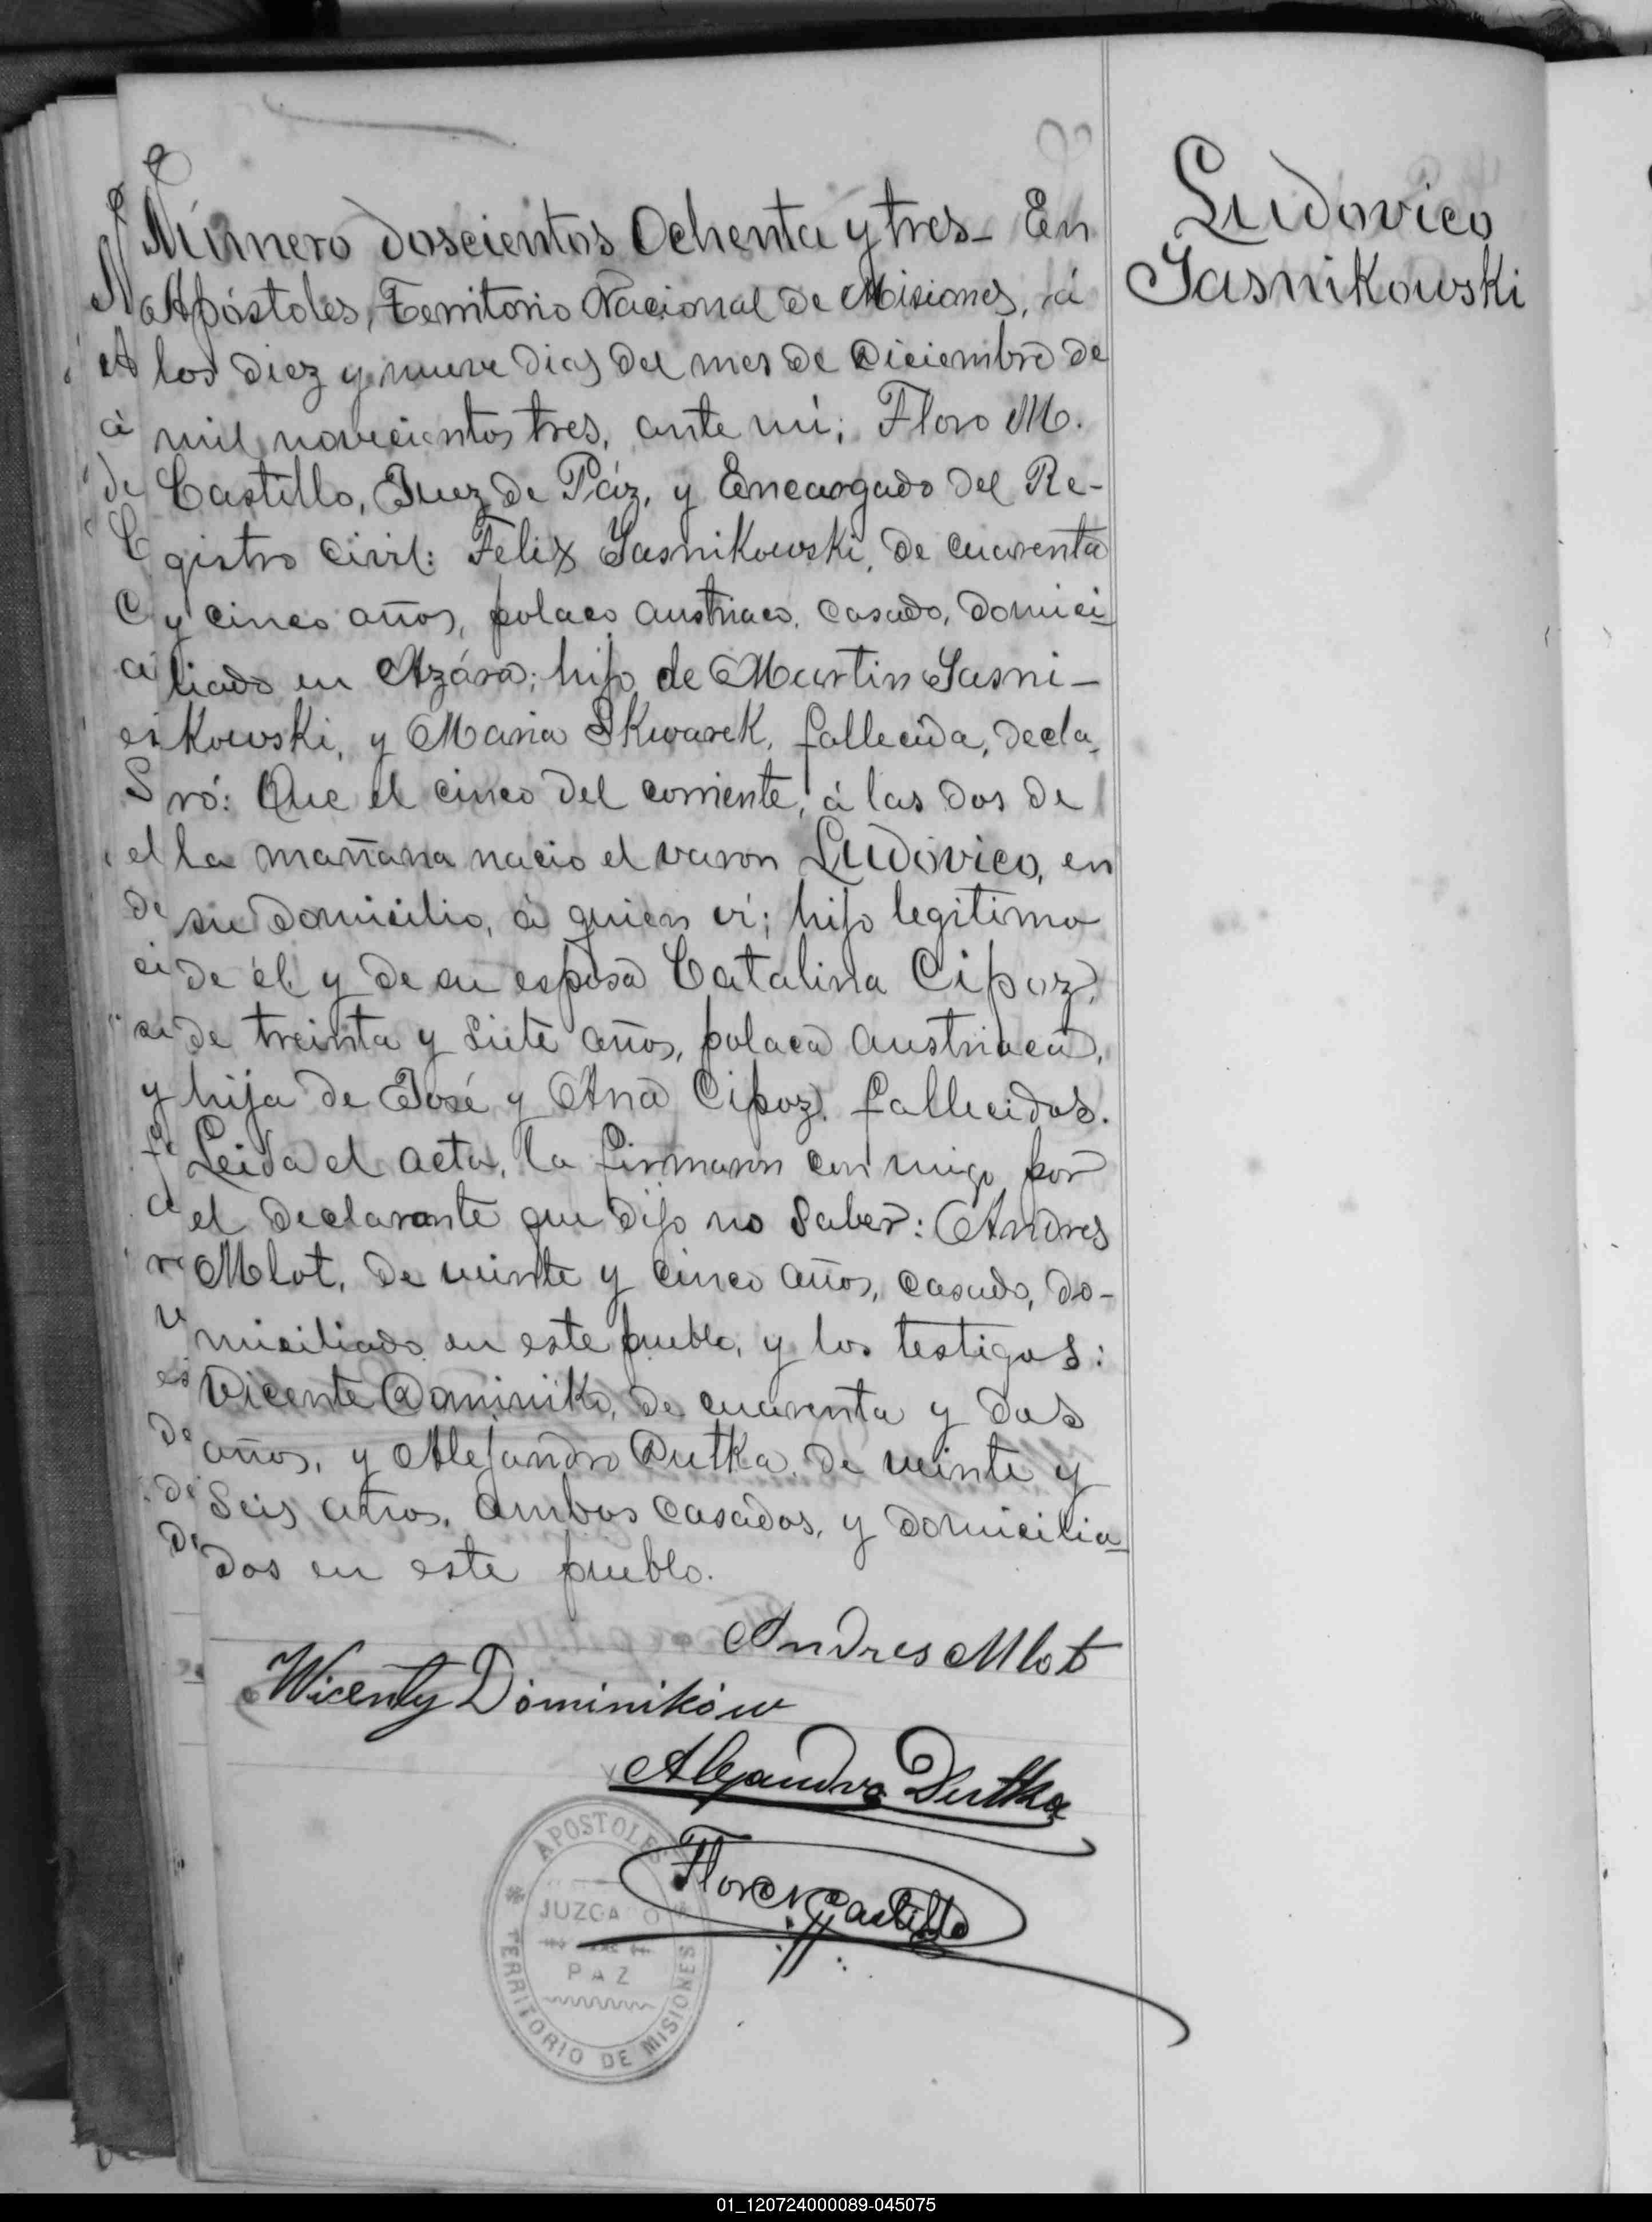 Ludovico
Jasnikowski
Número doscientos Ochenta y tres_ En
Apóstoles, Territorio Nacional de Misiones, á
los diez y nueve dias del mes de Diciembre de
mil novecientos tres, ante mi; Floro M.
Castillo, Juez de Páz, y Encargado del Re-
gistro Civil: Felix Jasnikowski, de cuarenta
y cinco años, polaco austriaco, casado, domici-
liado en Azára; hijo de Martin Jasni-
kowski, y Maria Skwarek, fallecida, decla-
ró: Que el cinco del corriente, á las dos de
la mañana nacio el varon Ludovico, en
su domicilio, á quien ví; hijo legitimo
de él y de su esposa Catalina Cipoz,
de treinta y siete años, polaca austriaca,
y hija de José y Ana Cipoz, fallecidos.
Leida el acta, la firmaron con migo por
el declarante que dijo no saber: Andres
Mlot, de veinte y cinco años, casado, do-
miciliado en este pueblo, y los testigos:
Vicente Dominikó, de cuarenta y dos
años, y Alejandro Dutka, de veinte y
seis años, ambos casados, y domicilia-
dos en este pueblo.
Andres Mlot
Wicenty Dominików
Alejandro Dutka
Floro M Castillo
APOSTOLES
JUZGADO
PAZ
TERRITORIO DE MISIONES
01_120724000089-045075